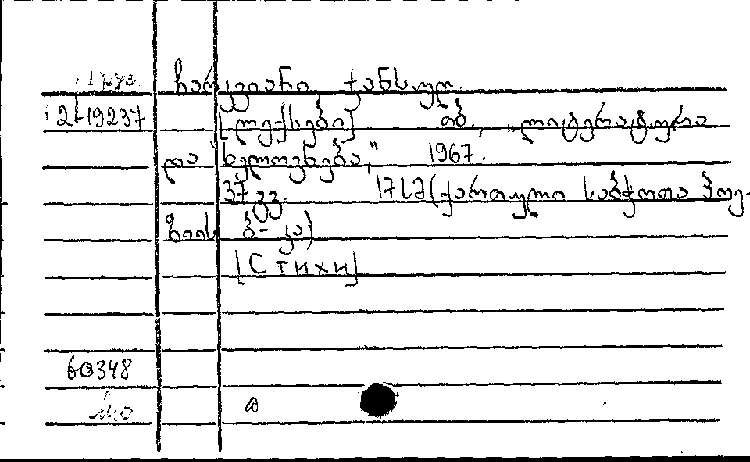 ჩარკვიანი, ჯანსუღ.
2-19237 [ლექსები] თბ., „ლიტერატურა
და ხელოვნება," 1967.
37 გვ. 17სმ (ქართული საბჭოთა პოე-
ზიის ბ-კა)
[Стихи]
60348